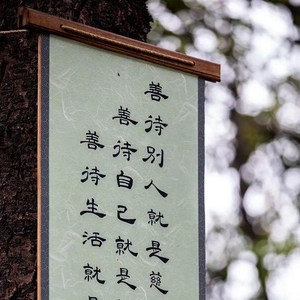 善待別人就是慈
善待自己就是
善待生活就是